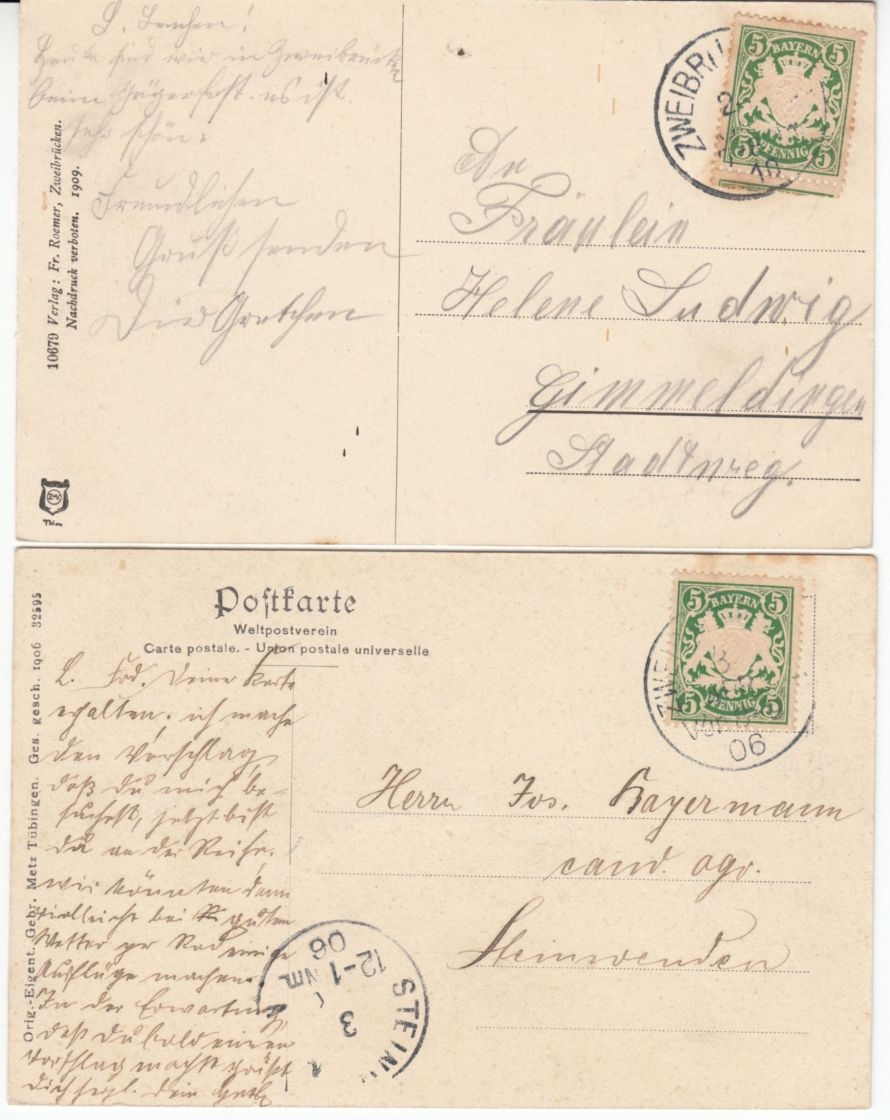 L. Lenchen!
Heute sind wir in Zweibrücken
beim Jägerfest. es ist
sehr schön.
Freundlichen
Gruß senden
Die Gretchen
10679 Verlag: Fr. Roemer, Zweibrücken.
Nachdruck verboten. 1909.
ZWEIBRÜ
5 BAYERN 5
5 PFENNIG 5
An
Fräulein
Helene Ludwig
Gimmeldingen
Stadtweg.
Postkarte
Weltpostverein
Carte postale. - Union postale universelle
Orig.-Eigent. Gebr. Metz Tübingen. Ges. gesch. 1906 32595
L. Frd. Deine Karte
erhalten. ich mache
den Vorschlag,
daß du mich be-
suchest, jetzt bist
du an der Reihe.
wir könnten dann
vielleicht bei guten
Wetter per Rad einige
Ausflüge machen.
In der Erwartung,
daß du bald einen
Vorschlag machst grüßt
Dich herzl. dein
5 BAYERN 5
5 PFENNIG 5
ZWE
06
Herrn Jos. Bayermann
cand. agr.
Steinwenden
STEIN
3
12-1 Nm.
06